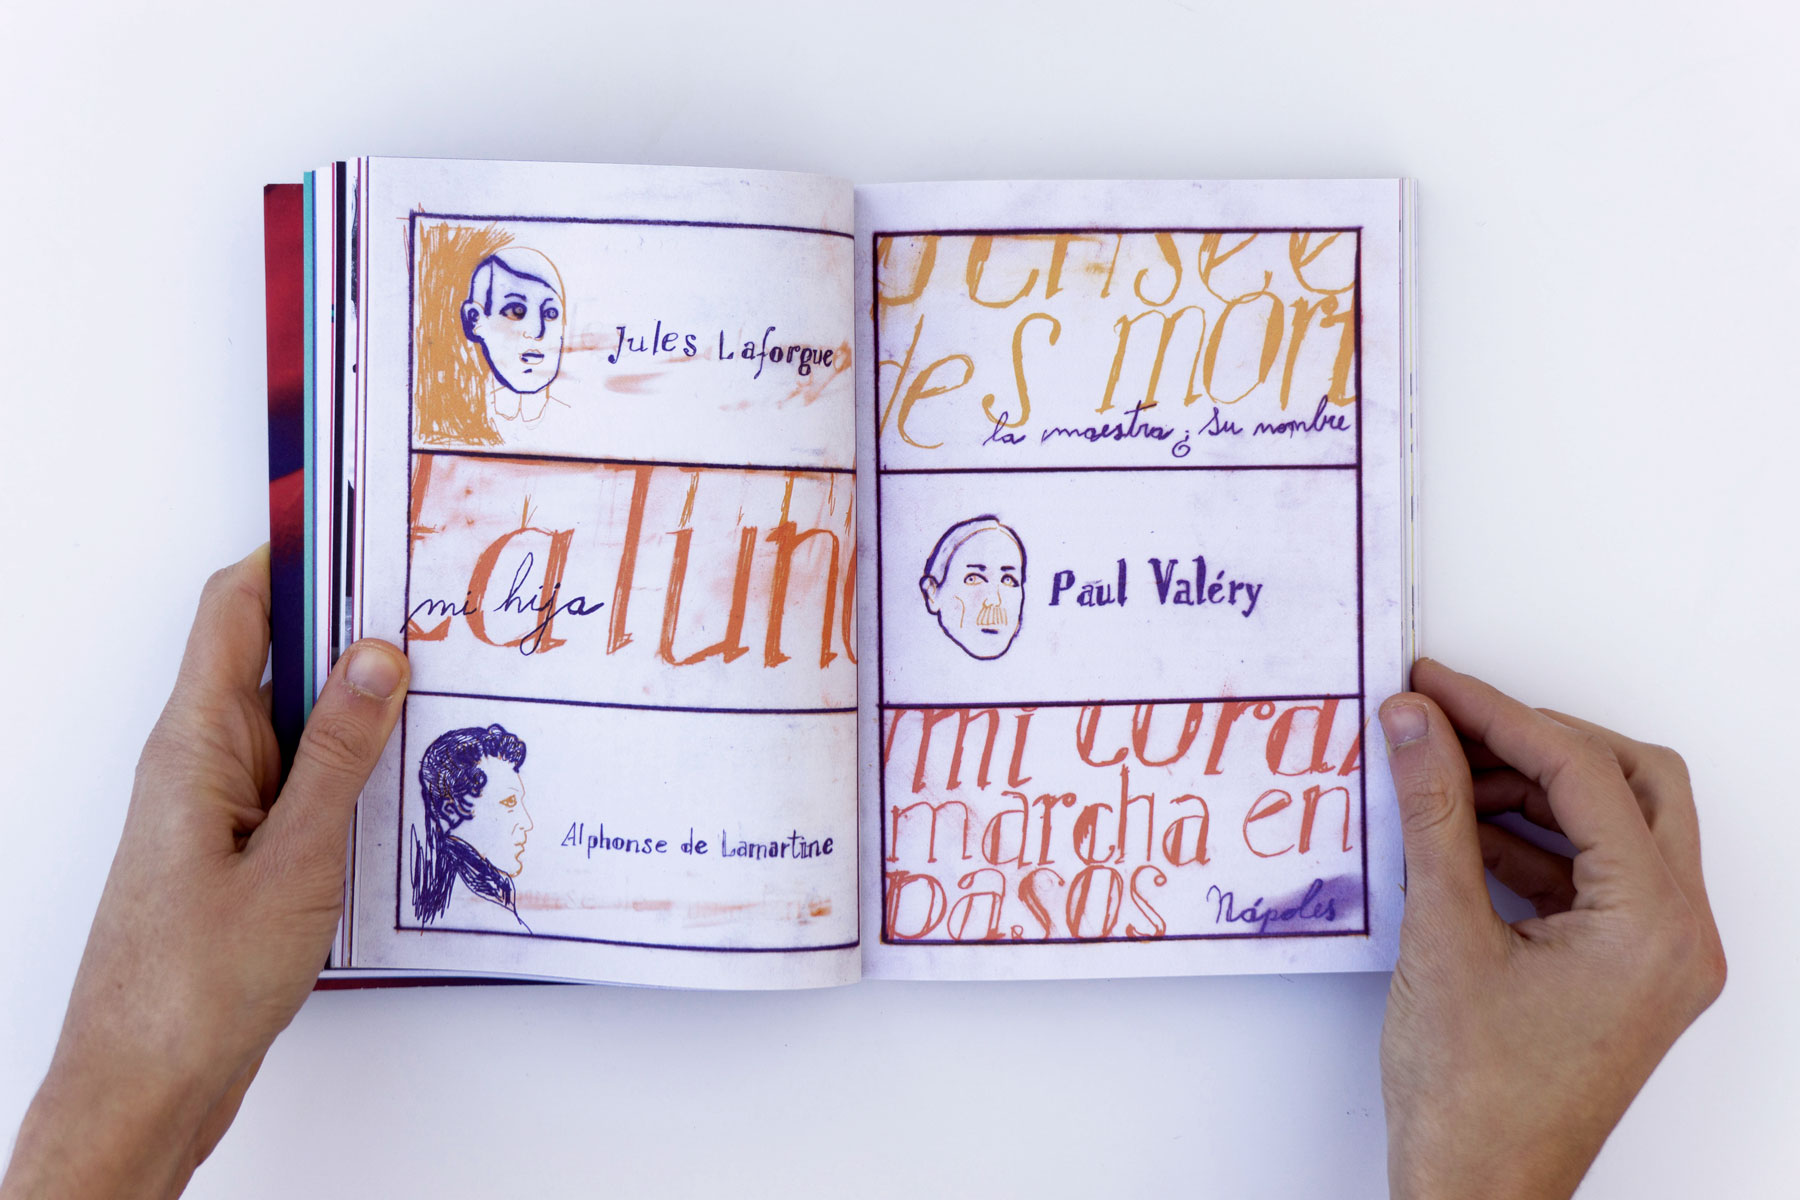 Jules Laforgue
La luna
mi hija
Alphonse de Lamartine
pensée
des mort
la maestra ; su nombre
Paul Valéry
mi coraz
marcha en
pasos
Nápoles